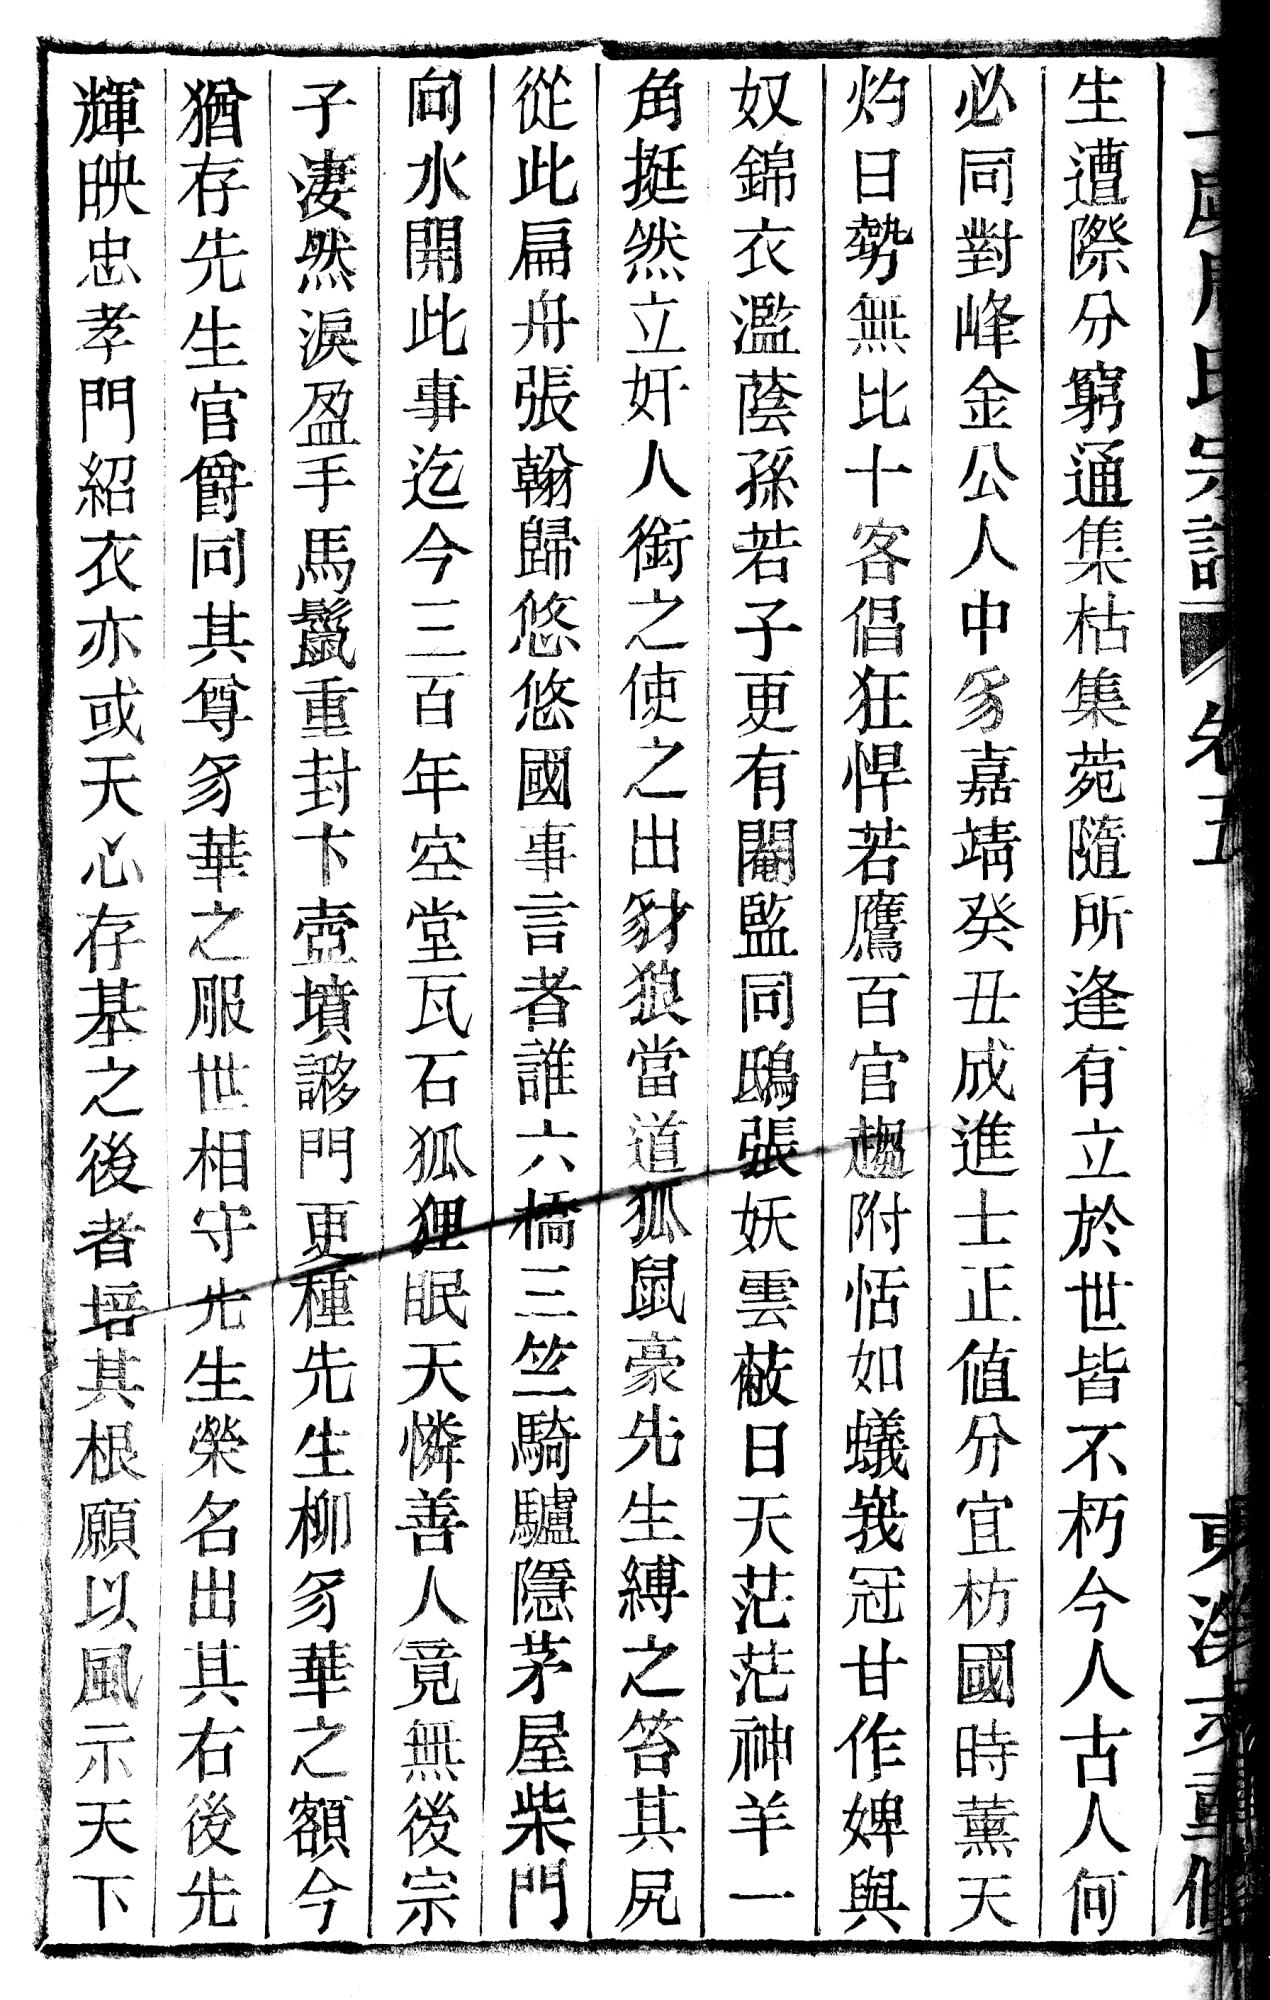 生遭際分窮通集枯集菀隨所逢有立於世皆不朽今人古人何
必同對峰金公人中豸嘉靖癸丑成進士正值分宜枋國時薰天
灼日勢無比十客倡狂悍若鷹百官趨附恬如蟻峩冠甘作婢與
奴錦衣濫蔭孫若子更有閹監同鴟張妖雲蔽日天茫茫神羊一
角挺然立奸人銜之使之出豺狼當道狐鼠豪先生縛之笞其尻
從此扁舟張翰歸悠悠國事言者誰六橋三竺騎驢隱茅屋柴門
向水開此事迄今三百年空堂瓦石狐狸眠天憐善人竟無後宗
子凄然淚盈手馬鬛重封卞壼墳謻門更種先生柳豸華之額今
猶存先生官爵同其尊豸華之服世相守先生榮名出其右後先
輝映忠孝門紹衣亦或天心存基之後者培其根願以風示天下